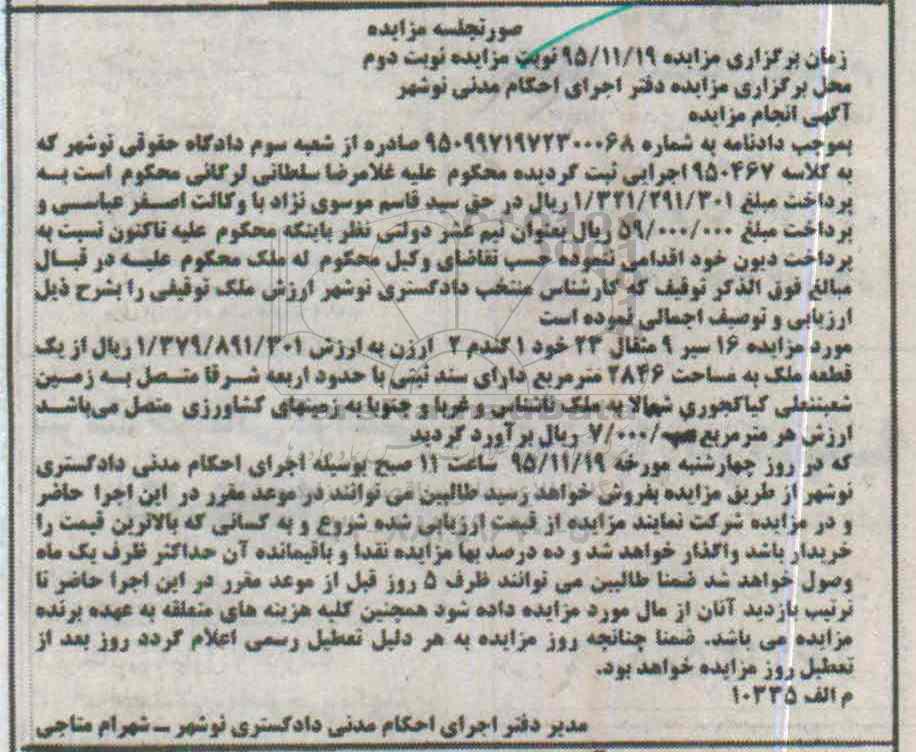 صورتجلسه مزایده
زمان برگزاری مزایده ۹۵/۱۱/۱۹ نوبت مزایده نوبت دوم
محل برگزاری مزایده دفتر اجرای احکام مدنی نوشهر
آگهی انجام مزایده
بموجب دادنامه به شماره ۹۵۰۹۹۷۱۹۷۲۳۰۰۰۶۸ صادره از شعبه سوم دادگاه حقوقی نوشهر که
به کلاسه ۹۵۰۴۶۷ اجرایی ثبت گردیده محکوم علیه غلامرضا سلطانی لرگانی محکوم است به
پرداخت مبلغ ۱/۳۲۱/۲۹۱/۳۰۱ ریال در حق سید قاسم موسوی نژاد با وکالت اصغر عباسی و
پرداخت مبلغ ۵۹/۰۰۰/۰۰۰ ریال بعنوان نیم عشر دولتی نظر باینکه محکوم علیه تاکنون نسبت به
پرداخت دیون خود اقدامی ننموده حسب تقاضای وکیل محکوم له ملک محکوم علیه در قبال
مبالغ فوق الذکر توقیف که کارشناس منتخب دادگستری نوشهر ارزش ملک توقیفی را بشرح ذیل
ارزیابی و توصیف اجمالی نموده است
مورد مزایده ۱۶ سیر ۹ مثقال ۲۳ خود ۱ گندم ۲ ارزن به ارزش ۱/۳۷۹/۸۹۱/۳۰۱ ریال از یک
قطعه ملک به مساحت ۲۸۴۶ مترمربع دارای سند ثبتی با حدود اربعه شرقا متصل به زمین
شعبنعلی کیاکجوری شمالا به ملک ناشناس و غربا و جنوبا به زمینهای کشاورزی متصل می‌باشد
ارزش هر مترمربع ۷/۰۰۰/ ریال برآورد گردید
که در روز چهارشنبه مورخه ۹۵/۱۱/۱۹ ساعت ۱۱ صبح بوسیله اجرای احکام مدنی دادگستری
نوشهر از طریق مزایده بفروش خواهد رسید طالبین می توانند در موعد مقرر در این اجرا حاضر
و در مزایده شرکت نمایند مزایده از قیمت ارزیابی شده شروع و به کسانی که بالاترین قیمت را
خریدار باشد واگذار خواهد شد و ده درصد بها مزایده نقدا و باقیمانده آن حداکثر ظرف یک ماه
وصول خواهد شد ضمنا طالبین می توانند ظرف ۵ روز قبل از موعد مقرر در این اجرا حاضر تا
ترتیب بازدید آنان از مال مورد مزایده داده شود همچنین کلیه هزینه های متعلقه به عهده برنده
مزایده می باشد. ضمنا چنانچه روز مزایده به هر دلیل تعطیل رسمی اعلام گردد روز بعد از
تعطیل روز مزایده خواهد بود.
م الف ۱۰۳۳۵
مدیر دفتر اجرای احکام مدنی دادگستری نوشهر ــ شهرام متاجی